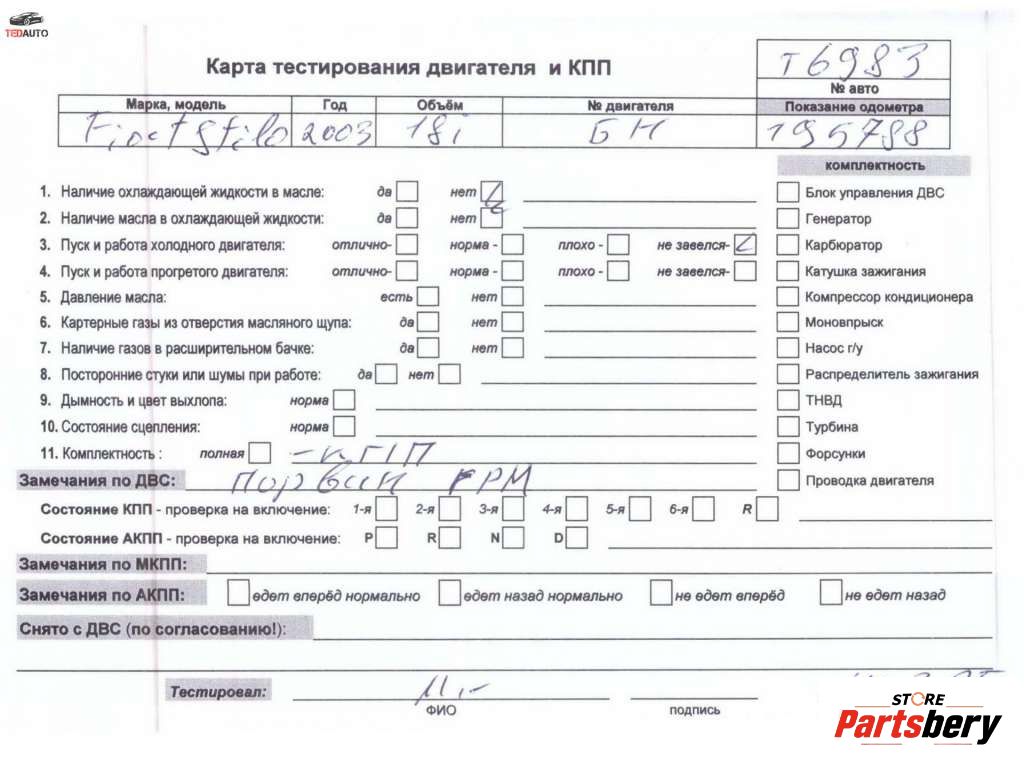 TEDAUTO
Карта тестирования двигателя и КПП
Т6983
№ авто
Марка, модель Год Объём № двигателя Показание одометра
Fiat Stilo 2003 18i БН 195788
комплектность
1. Наличие охлаждающей жидкости в масле: да нет Блок управления ДВС
2. Наличие масла в охлаждающей жидкости: да нет Генератор
3. Пуск и работа холодного двигателя: отлично- норма - плохо - не завелся- Карбюратор
4. Пуск и работа прогретого двигателя: отлично- норма - плохо - не завелся- Катушка зажигания
5. Давление масла: есть нет Компрессор кондиционера
6. Картерные газы из отверстия масляного щупа: да нет Моновпрыск
7. Наличие газов в расширительном бачке: да нет Насос г/у
8. Посторонние стуки или шумы при работе: да нет Распределитель зажигания
9. Дымность и цвет выхлопа: норма ТНВД
10. Состояние сцепления: норма Турбина
11. Комплектность : полная -КПП Форсунки
Замечания по ДВС: Порван ГРМ Проводка двигателя
Состояние КПП - проверка на включение: 1-я 2-я 3-я 4-я 5-я 6-я R
Состояние АКПП - проверка на включение: P R N D
Замечания по МКПП:
Замечания по АКПП: едет вперёд нормально едет назад нормально не едет вперёд не едет назад
Снято с ДВС (по согласованию!):
Тестировал:
ФИО подпись
STORE
Partsbery